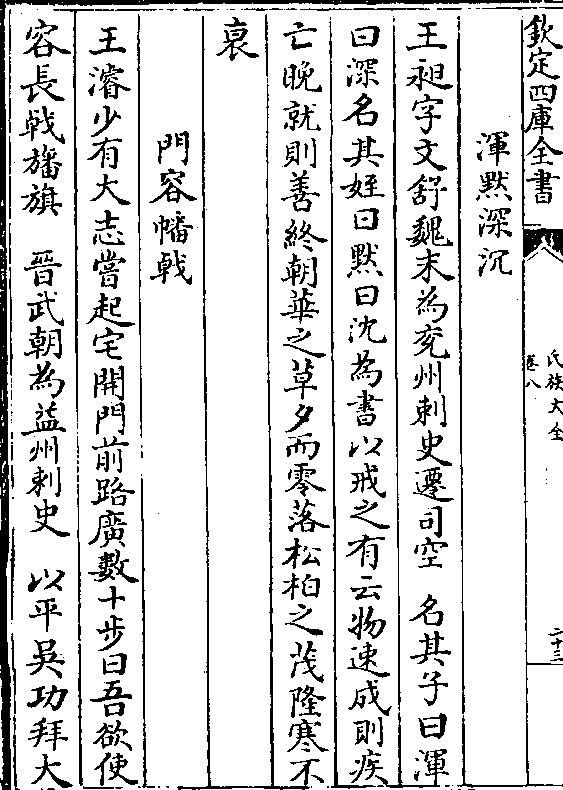 欽定四庫全書
氏族大全
卷八
二十三
渾黙深沉
王昶字文舒魏末為兖州刺史遷司空 名其子曰渾
曰深名其姪曰黙曰沈為書以戒之有云物速成則疾
亡晚就則善終朝華之草夕而零落松柏之茂隆寒不
衰
門容幡戟
王濬少有大志嘗起宅開門前路廣數十步曰吾欲使
容長戟旛旗 晉武朝為益州刺史 以平吳功拜大